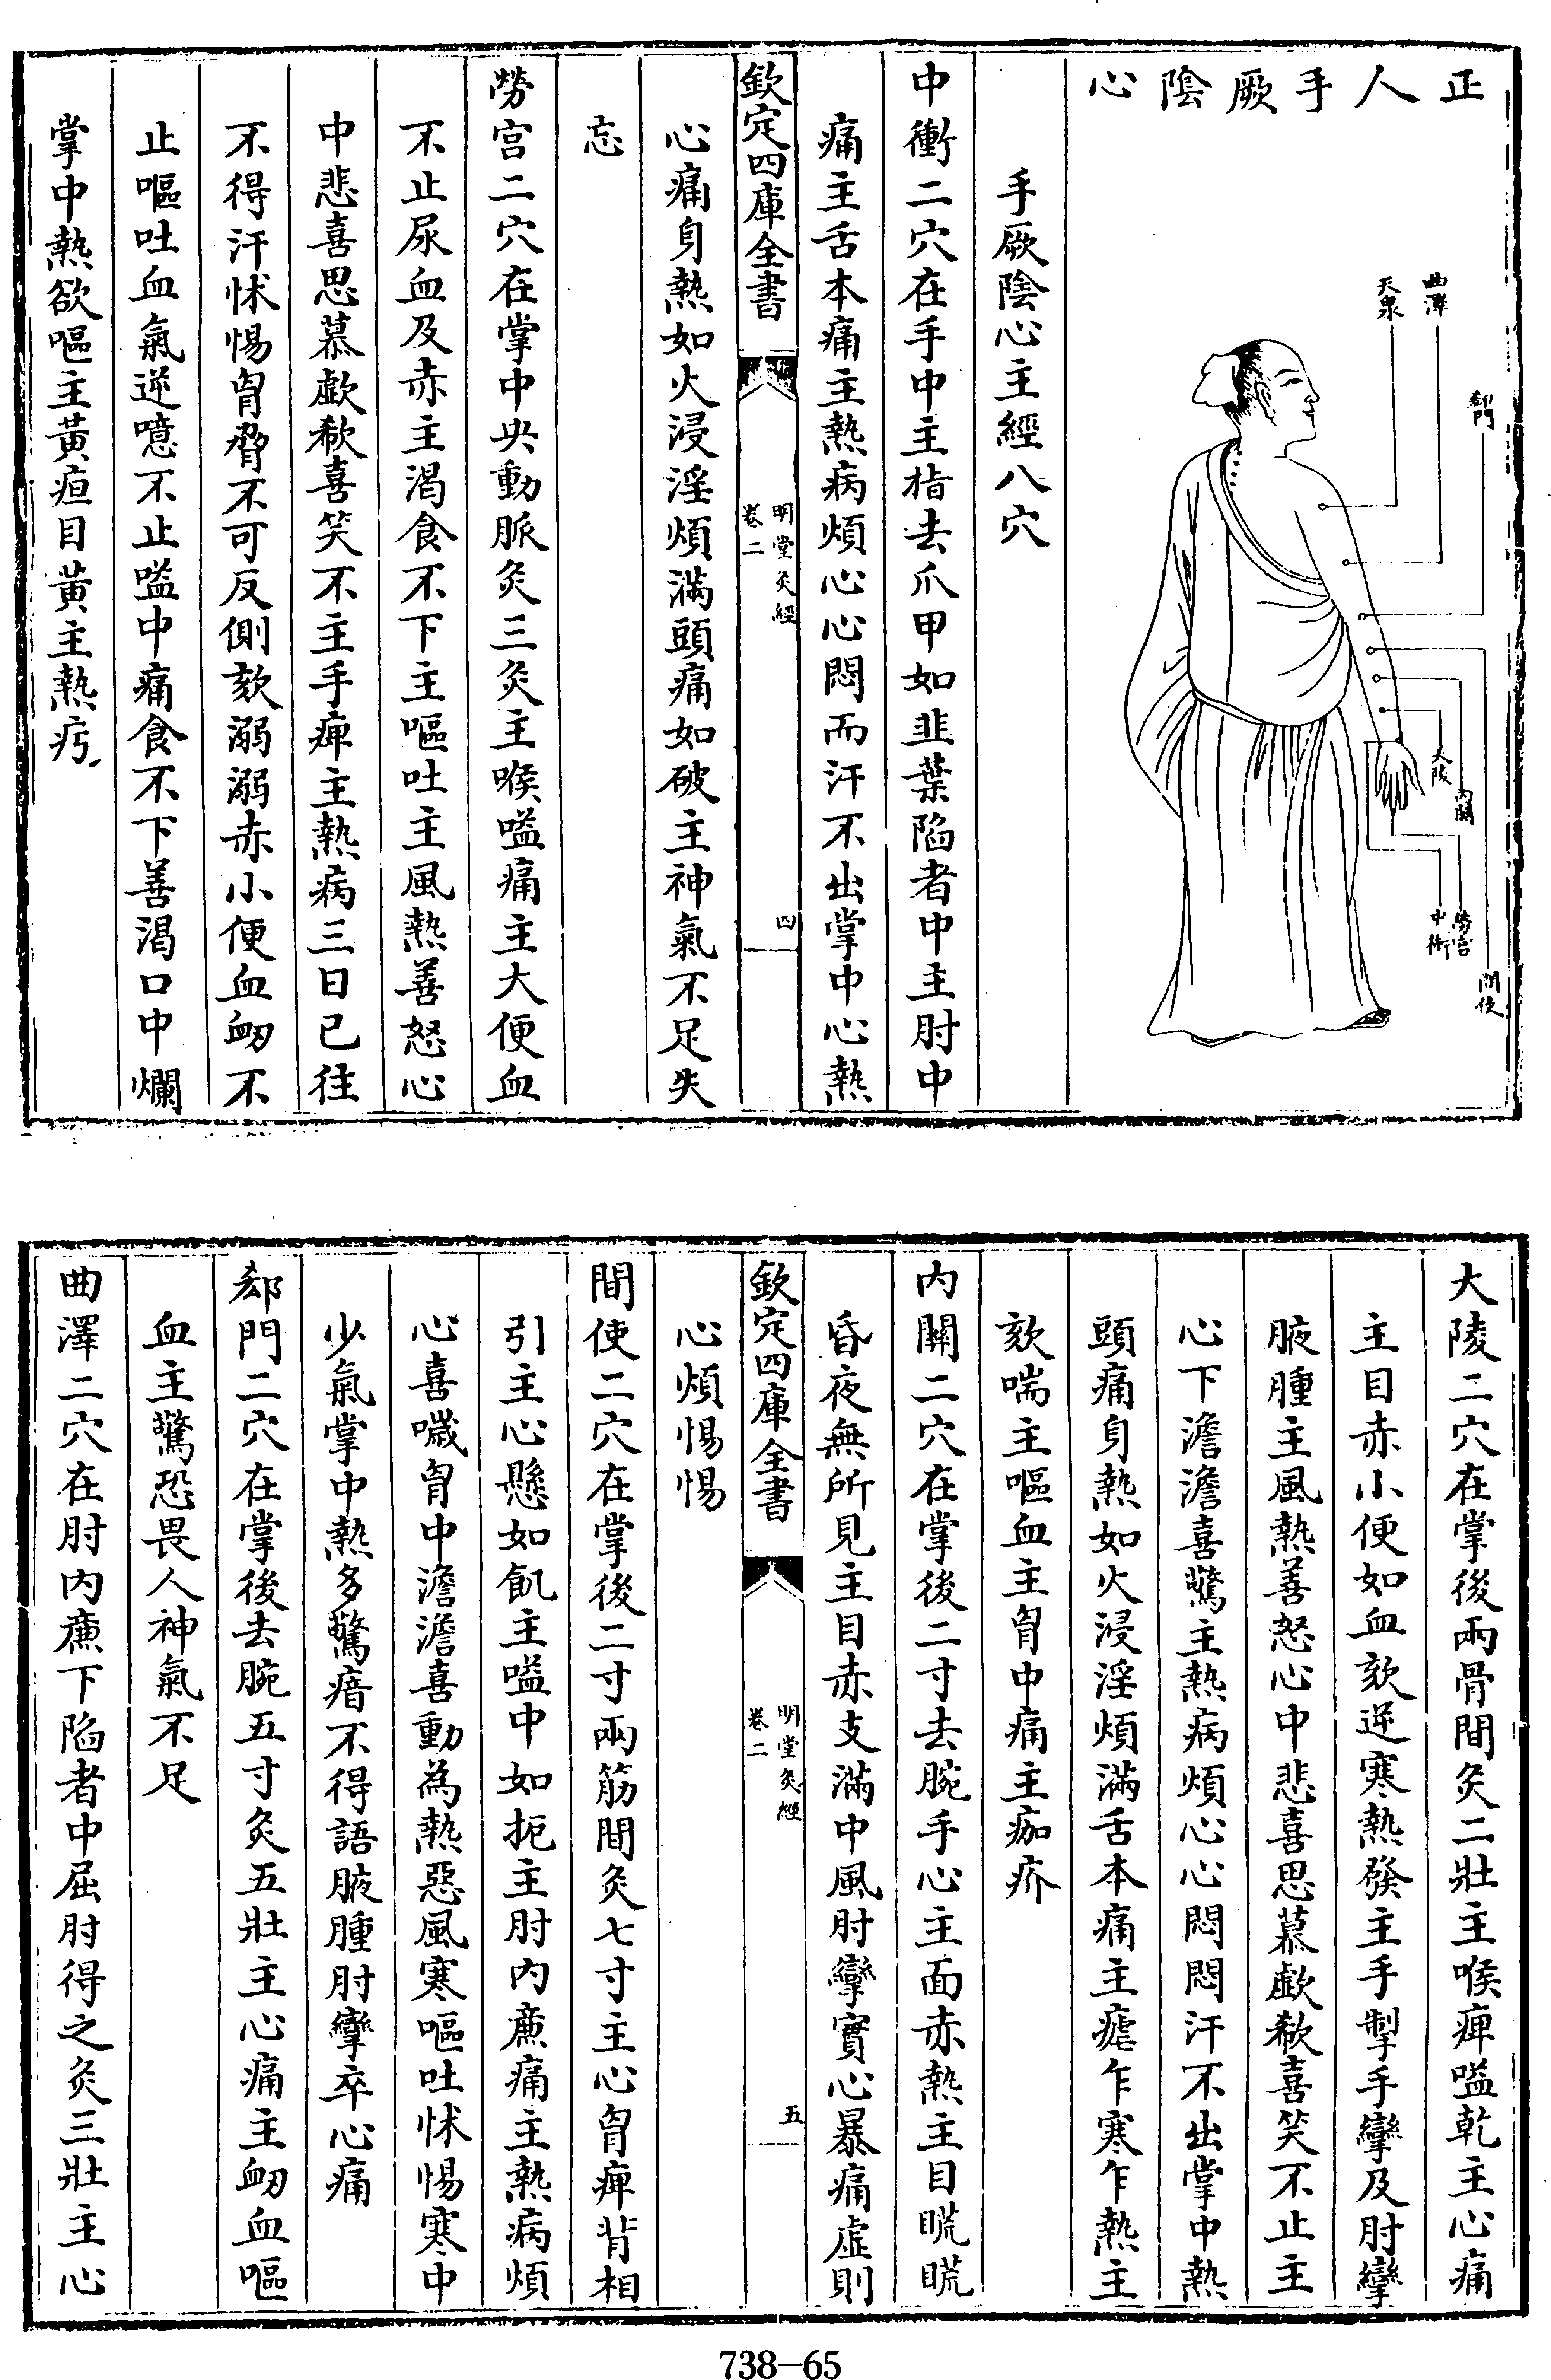 正人手厥陰心
曲澤
天泉
郄門
大陵
內關
勞宮
中衝
間使
手厥陰心主經八穴
中衝二穴在手中主指去爪甲如韭葉陷者中主肘中
痛主舌本痛主熱病煩心心悶而汗不出掌中心熱
欽定四庫全書
明堂灸經
卷二
四
心痛身熱如火浸淫煩滿頭痛如破主神氣不足失
忘
勞宮二穴在掌中央動脈灸三灸主喉嗌痛主大便血
不止尿血及赤主渴食不下主嘔吐主風熱善怒心
中悲喜思慕歔欷喜笑不主手痺主熱病三日已往
不得汗怵惕胷脅不可反側欬溺溺赤小便血衂不
止嘔吐血氣逆噫不止嗌中痛食不下善渴口中爛
掌中熱欲嘔主黃疸目黃主熱疠
大陵二穴在掌後兩骨間灸二壯主喉痺嗌乾主心痛
主目赤小便如血欬逆寒熱發主手掣手攣及肘攣
腋腫主風熱善怒心中悲喜思慕歔欷喜笑不止主
心下澹澹喜驚主熱病煩心心悶悶汗不出掌中熱
頭痛身熱如火浸淫煩滿舌本痛主瘧乍寒乍熱主
欬喘主嘔血主胷中痛主痂疥
內關二穴在掌後二寸去腕手心主面赤熱主目䀮䀮
昏夜無所見主目赤支滿中風肘攣實心暴痛虛則
欽定四庫全書
明堂灸經
卷二
五
心煩惕惕
間使二穴在掌後二寸兩筋間灸七寸主心胷痺背相
引主心懸如飢主嗌中如扼主肘內廉痛主熱病煩
心喜噦胷中澹澹喜動為熱惡風寒嘔吐怵惕寒中
少氣掌中熱多驚瘖不得語腋腫肘攣卒心痛
郄門二穴在掌後去腕五寸灸五壯主心痛主衂血嘔
血主驚恐畏人神氣不足
曲澤二穴在肘內廉下陷者中屈肘得之灸三壯主心
738-65